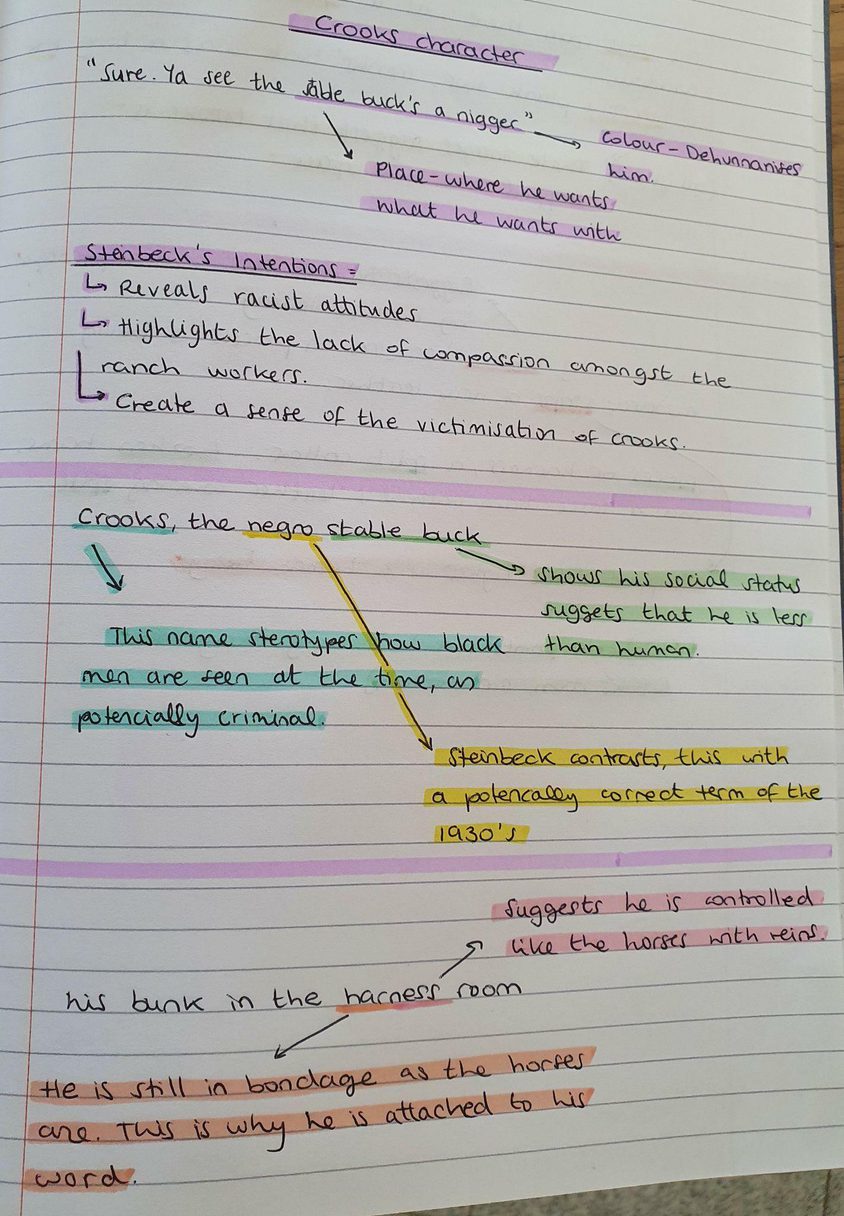 Crooks character
"Sure. Ya see the stable buck's a nigger"
Colour - Dehumanises
him.
Place - where he wants
what he wants with
Steinbeck's Intentions =
↳ Reveals racist attitudes
↳ Highlights the lack of compassion amongst the
ranch workers.
↳ Create a sense of the victimisation of crooks.
Crooks, the negro stable buck
shows his social status
suggets that he is less
than human.
This name sterotypes how black
men are seen at the time, as
potencially criminal.
Steinbeck contrasts, this with
a potencally correct term of the
1930's
suggests he is controlled
like the horses with reins.
his bunk in the harness room
He is still in bondage as the horses
are. This is why he is attached to his
word.